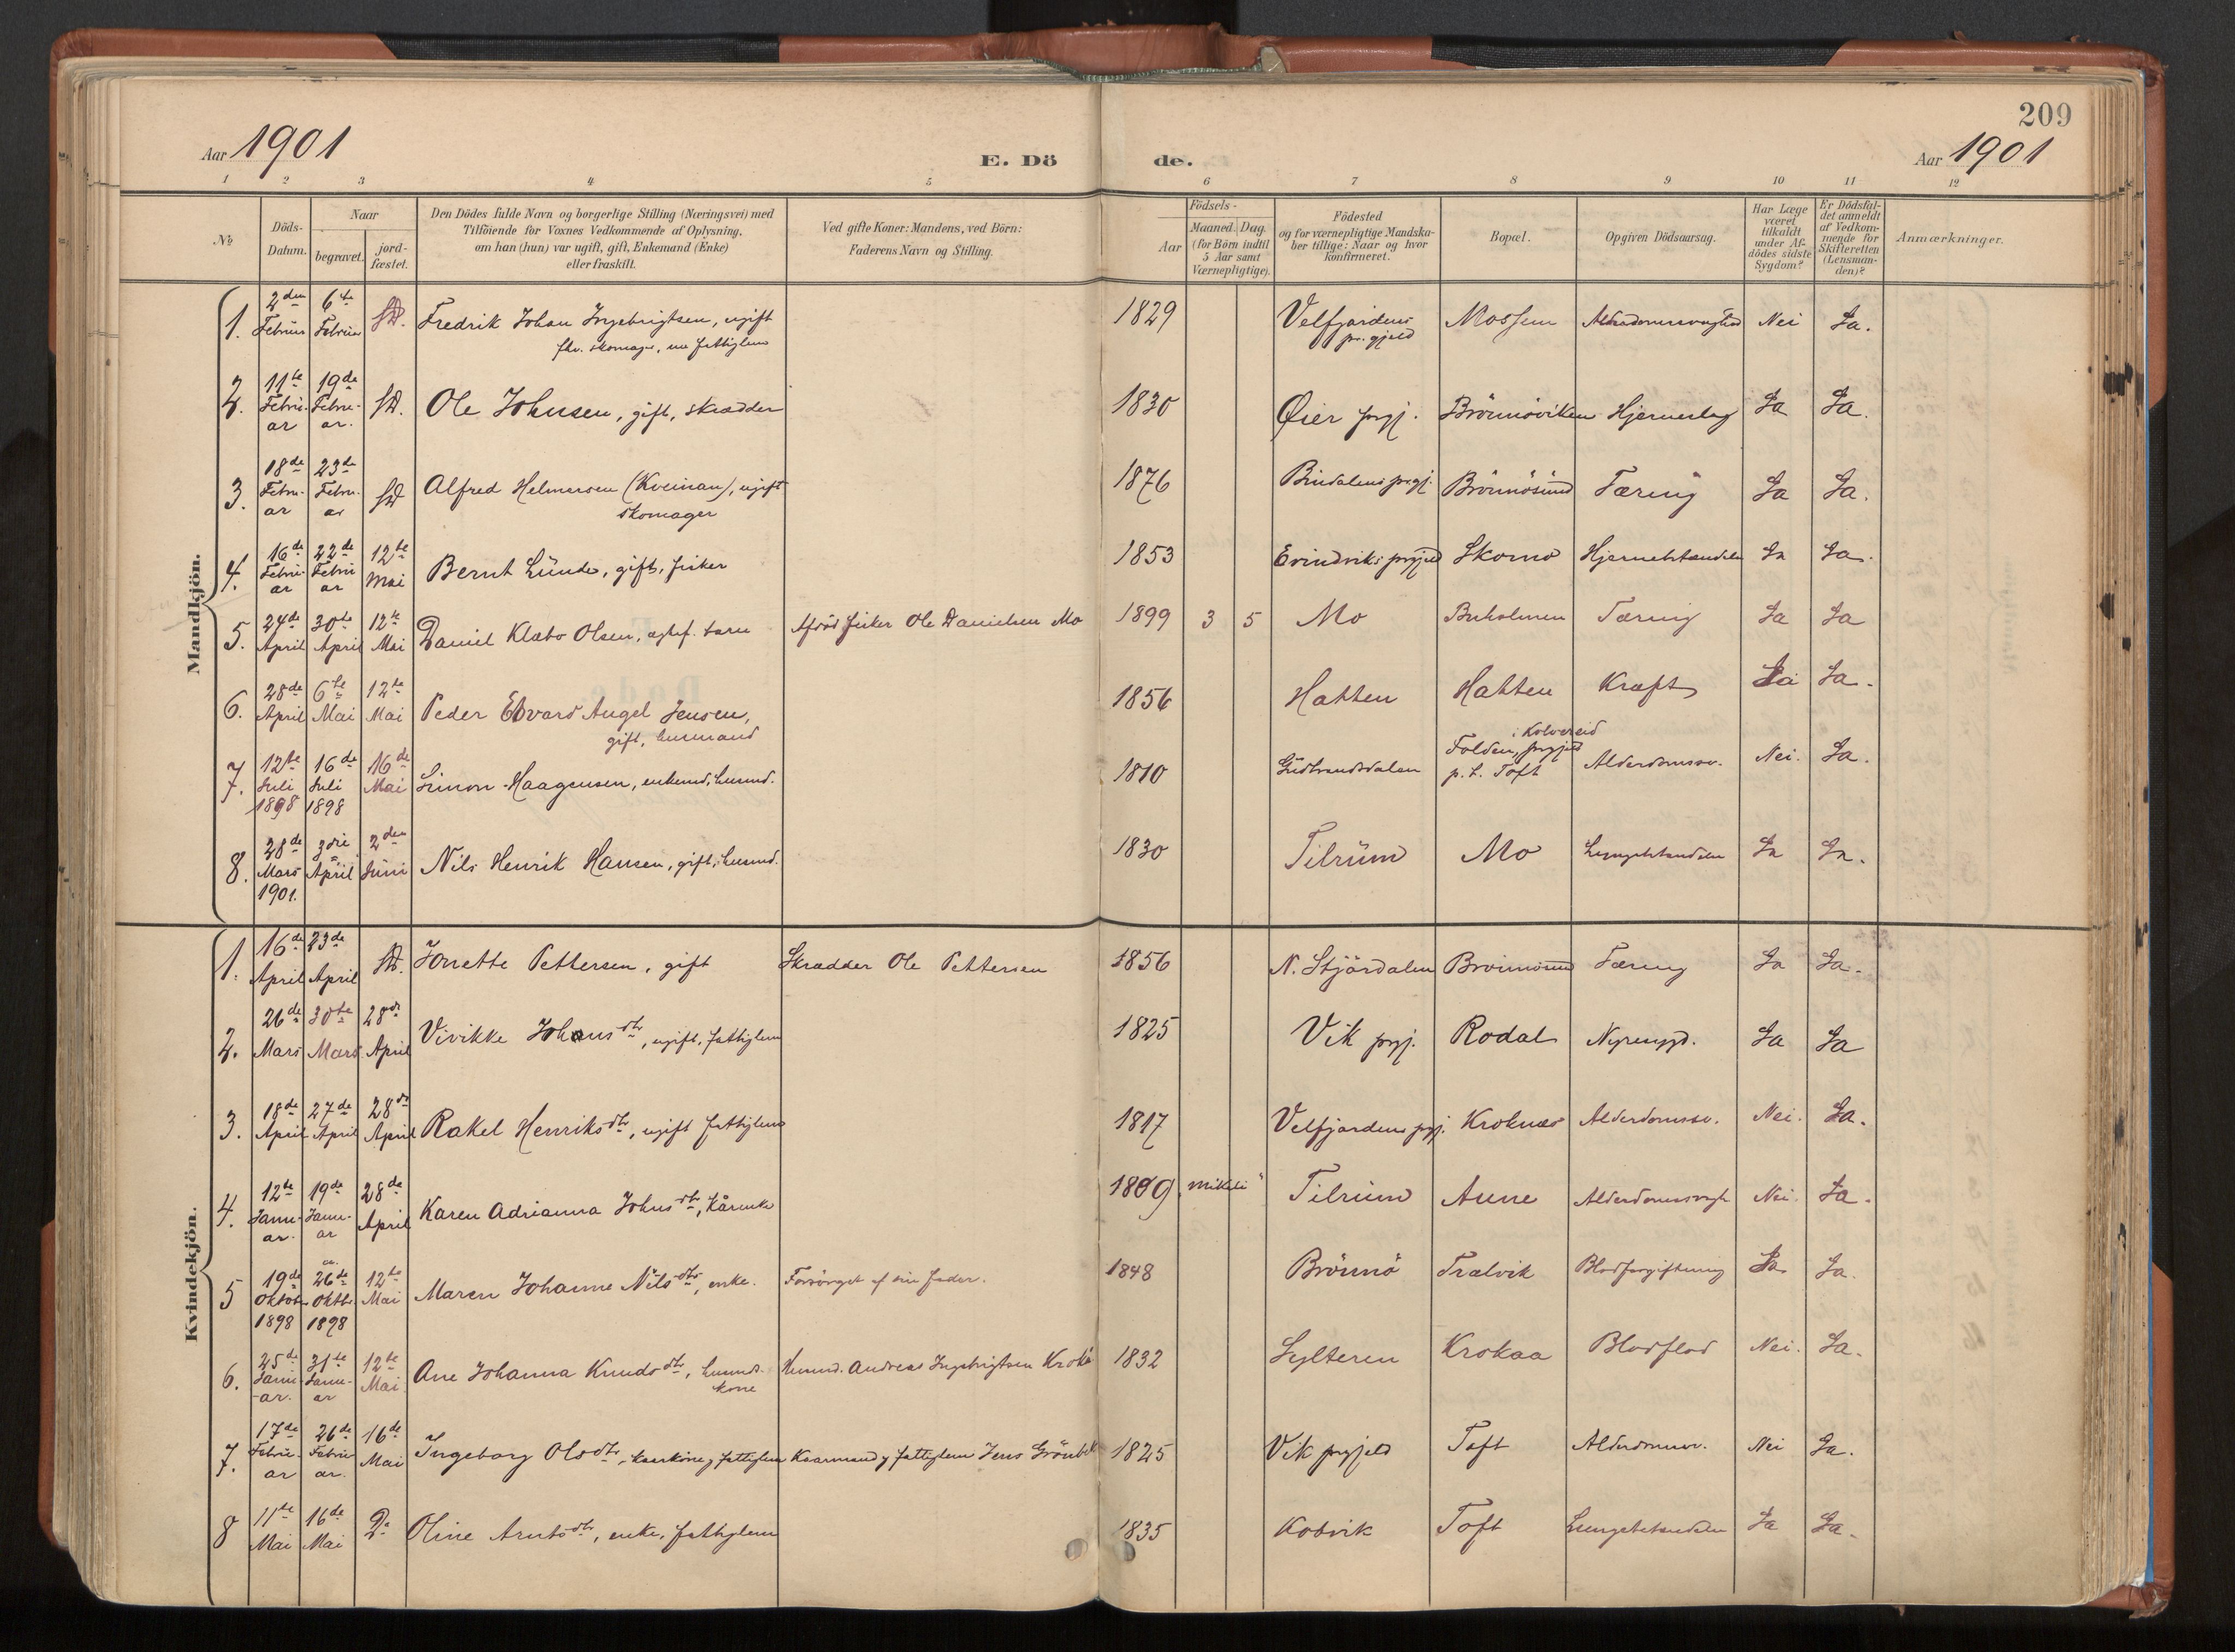 209
Aar 1901
E. Dö de.
Aar 1901
1 2 3 4 5 6 7 8 9 10 11 12
No
Döds-Datum.
Naar
begravet.
jord-fæstet.
Den Dödes fulde Navn og borgerlige Stilling (Næringsvei) med
Tilföiende for Voxnes Vedkommende af Oplysning,
om han (hun) var ugift, gift, Enkemand (Enke)
eller fraskilt.
Ved gifte Koner: Mandens, ved Börn:
Faderens Navn og Stilling.
Födsels-
Aar
Maaned. Dag.
(for Börn indtil
5 Aar samt
Værnepligtige).
Födested
og for værnepligtige Mandska-
ber tillige: Naar og hvor
konfirmeret.
Bopæl.
Opgiven Dödsaarsag.
Har Læge
været
tilkaldt
under Af-
dödes sidste
Sygdom?
Er Dödsfal-
det anmeldt
af Vedkom-
mende for
Skifteretten
(Lensman-
den)?
Anmærkninger.
Mandkjön.
1. 2den Februar 6te Februar sD. Fredrik Johan Ingebrigtsen, ugift 1829 Velfjordens pr.gjeld Nei Ja.
fhv. skomager, nu fattiglem
2. 11te Febru-ar 19de Febru-ar. sD. Ole Johnsen, gift, skrædder 1830 Øier prgj. Brönnöviken Hjerneslag Ja Ja.
3. 18de Febru-ar 23de Febru-ar sD Alfred Helmersen (Kveinan), ugift 1876 Bindalens prgj. Brönnösund Tæring Ja Ja.
skomager
4. 16de Febru-ar 22de Febru-ar 12te Mai Bernt Lunde, gift, fisker 1853 Evindviks prgjeld Skomo Ja Ja.
5. 24de April 30te April 12te Mai Daniel Klæbo Olsen, ægtef. barn Afdöd fisker Ole Danielsen Mo 1899 3 5 Mo Buholmen Tæring Ja Ja
6. 28de April 6te Mai 12te Mai Peder Edvard Angel Jensen, 1856 Hatten Hatten Kræft Ja Ja.
gift, husmand
7. 12te Juli 1898 16de Juli 1898 16de Mai Simon Haagensen, enkemd, husmd. 1810 Gudbrandsdalen Folden, prgjeld i Kolvereid p.t. Toft Alderdomssv. Nei. Ja.
8. 28de Mars 1901. 3die April 2den Juni Nils Henrik Hansen, gift, husmd. 1830 Tilrum Mo Ja Ja.
Kvindekjön.
1. 16de April 23de April sD. Jonette Pettersen, gift Skrædder Ole Pettersen 1856 N. Stjördalen Brönnösund Tæring Ja Ja.
2. 26de Mars 30te Mars 28de April Vivikke Johansdtr, ugift, fattiglem 1825 Vik prgj. Rodal Nyresygd. Ja Ja
3. 18de April 27de April 28de April Rakel Henriksdtr, ugift fattiglem 1817 Velfjordens prgj. Kroknæs Alderdomssv. Nei. Ja.
4. 12te Janu-ar. 19de Janu-ar 28de April Karen Adrianna Johnsdtr, kårenke 1809 "mikeli" Tilrum Aune Alderdomssvagh Nei. Ja.
5 19de Oktob. 1898 ca. 26de Oktbr. 1898 12te Mai Maren Johanne Nilsdtr, enke. Forsörget af sin fader. 1848 Brönnö Trælvik Blodforgiftning Ja Ja.
6. 25de Janu-ar. 31te Janu-ar 12te Mai Ane Johanna Knudsdtr, husmds-kone Husmd. Andreas Ingebrigtsen Krokå 1832 Sylteren Krokaa Blodflod Nei. Ja.
7. 17de Febru-ar 26de Febru-ar. 16de Mai Ingeborg Olsdtr, kaarkone, fattiglem Kaarmand, fattiglem Jens Grönbæk 1825 Vik prgjeld Toft Alderdomssv. Nei Ja.
8 11te Mai 16de Mai Do Oline Arntsdtr, enke, fattiglem 1835 Kobvik Toft Lungebetændelse Ja Ja.